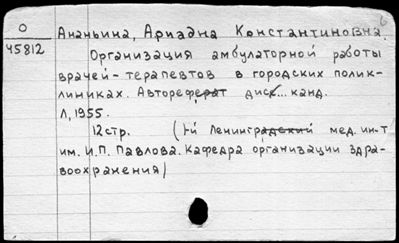 О
45812
Ананьина, Ариадна Константиновна.
Организация амбулаторной работы
врачей-терапевтов в городских полик-
линиках. Автореферат дисс... канд.
Л, 1955.
12стр. (1-й Ленинградский мед. ин-т
им. И.П. Павлова. Кафедра организации здра-
воохранения)